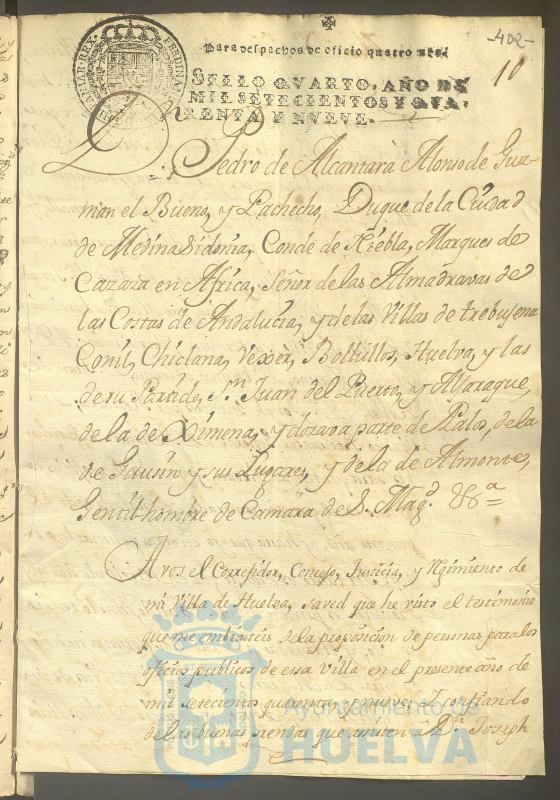 -402-
10
Para despachos de oficio quatro mrs.
SELLO QVARTO, AÑO DE
MIL SETECIENTOS Y QVA-
RENTA Y NVEVE.
D. Pedro de Alcantara Alonso de Guz-
man el Bueno, y Pachecho, Duque de la Ciudad
de Medina Sidonia, Conde de Niebla, Marques de
Cazaza en Africa, Señor de las Almadravas de
las Costas de Andalucia, y de las Villas de trebujena
Conil, Chiclana, Vexer, Bollullos, Huelva, y las
de su Partido, Sn. Juan del Puerto, y Alxaraque,
de la de Ximena, y dozava parte de Palos, de la
de Gausin y sus Lugares, y de la de Almonte,
Gentil hombre de Camara de S. Magd. &a =
A vos el Corregidor, Concejo, Justicia, y Regimiento de
mi Villa de Huelva, saved que he visto el testimonio
que me embiasteis de la proposicion de personas para los
oficios publicos de essa Villa en el presente año de
mil setecientos quarenta, y nueve. Y confiando
de las buenas prendas que asisten a Dn. Joseph
Ayuntamiento de
HUELVA